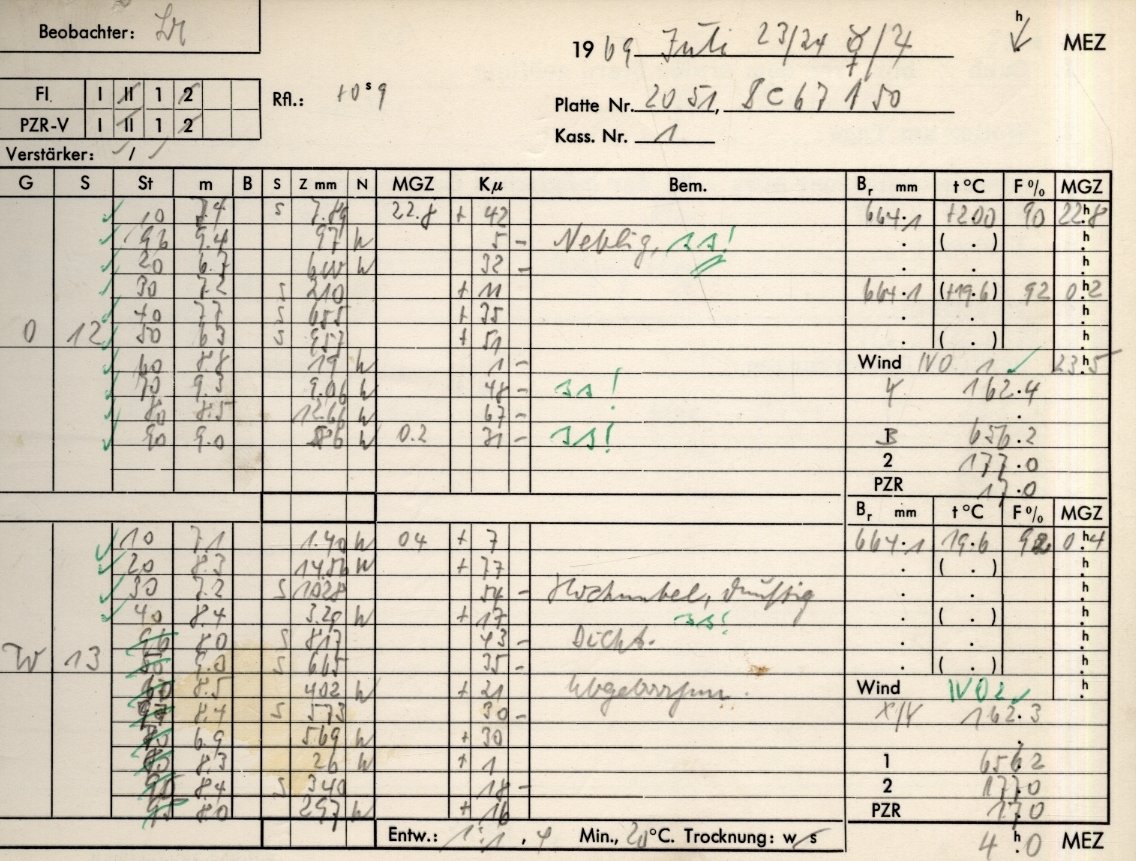 Beobachter:
1969 Juli 23/24 h MEZ
FI I II 1 2 Rfl.: +0 s 9
Platte Nr. 2051,
PZR-V I II 1 2
Kass. Nr. 1
Verstärker: /
G S St m B S Z mm N MGZ Kμ Bem. Br mm t°C F% MGZ
10 7.4 S 7.89 22.8 + 42 664.1 +20.0 90 22.8 h
9.4 97 5 - Neblig,
20 6.7 32 -
30 7.2 S 210 + 11 664.1 (+19.6) 92 0.2 h
40 7.7 S 655 + 35
0 12 50 6.3 S 957 + 51
60 8.8 19 1 - Wind 1 23.5 h
70 9.3 9.06 48 - 162.4
80 8.5 12.66 67 -
90 9.0 86 0.2 31 - B 656.2
2 177.0
PZR 17.0
Br mm t°C F% MGZ
10 7.1 1.40 04 + 7 664.1 19.6 92 0.4 h
20 8.3 14.56 + 77
30 7.2 S 1028 54 - Hochnebel, dunstig
40 8.4 3.20 + 17
8.0 S 817 43 - Dicht.
W 13 9.0 S 665 35 -
8.5 402 + 21 Abgebrochen. Wind
8.4 S 573 30 - X/Y 162.3
6.9 569 + 30
8.3 26 + 1 1 656.2
8.4 S 340 18 - 2 177.0
8.0 297 + 16 PZR 17.0
Entw.: 1:1, 4 Min., 20°C. Trocknung: w/s 4 h 0 MEZ